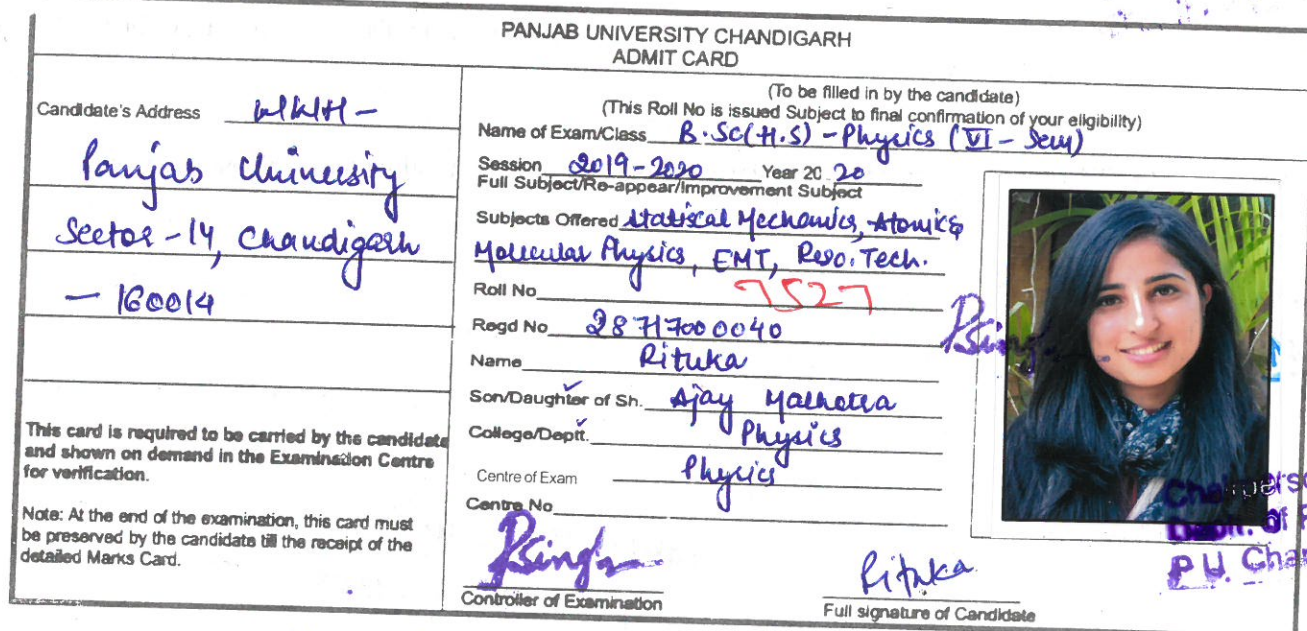 PANJAB UNIVERSITY CHANDIGARH
ADMIT CARD
Candidate's Address
Panjab University
Sector-14, Chandigarh
- 160014
This card is required to be carried by the candidate
and shown on demand in the Examination Centre
for verification.
Note: At the end of the examination, this card must
be preserved by the candidate till the receipt of the
detailed Marks Card.
(To be filled in by the candidate)
(This Roll No is issued Subject to final confirmation of your eligibility)
Name of Exam/Class B.Sc(H.S) - Physics (VI - Sem)
Session 2019-2020 Year 20 20
Full Subject/Re-appear/Improvement Subject
Subjects Offered Statiscal Mechanics, Atomic &
Molecular Physics, EMT, Reso. Tech.
Roll No 7527
Regd No 28717000040
Name Rituka
Son/Daughter of Sh. Ajay Malhotra
College/Deptt. Physics
Centre of Exam Physics
Centre No
PSingh
Controller of Examination
Rituka
Full signature of Candidate
PSingh
Chairperso
Deptt. of P
P.U. Chan